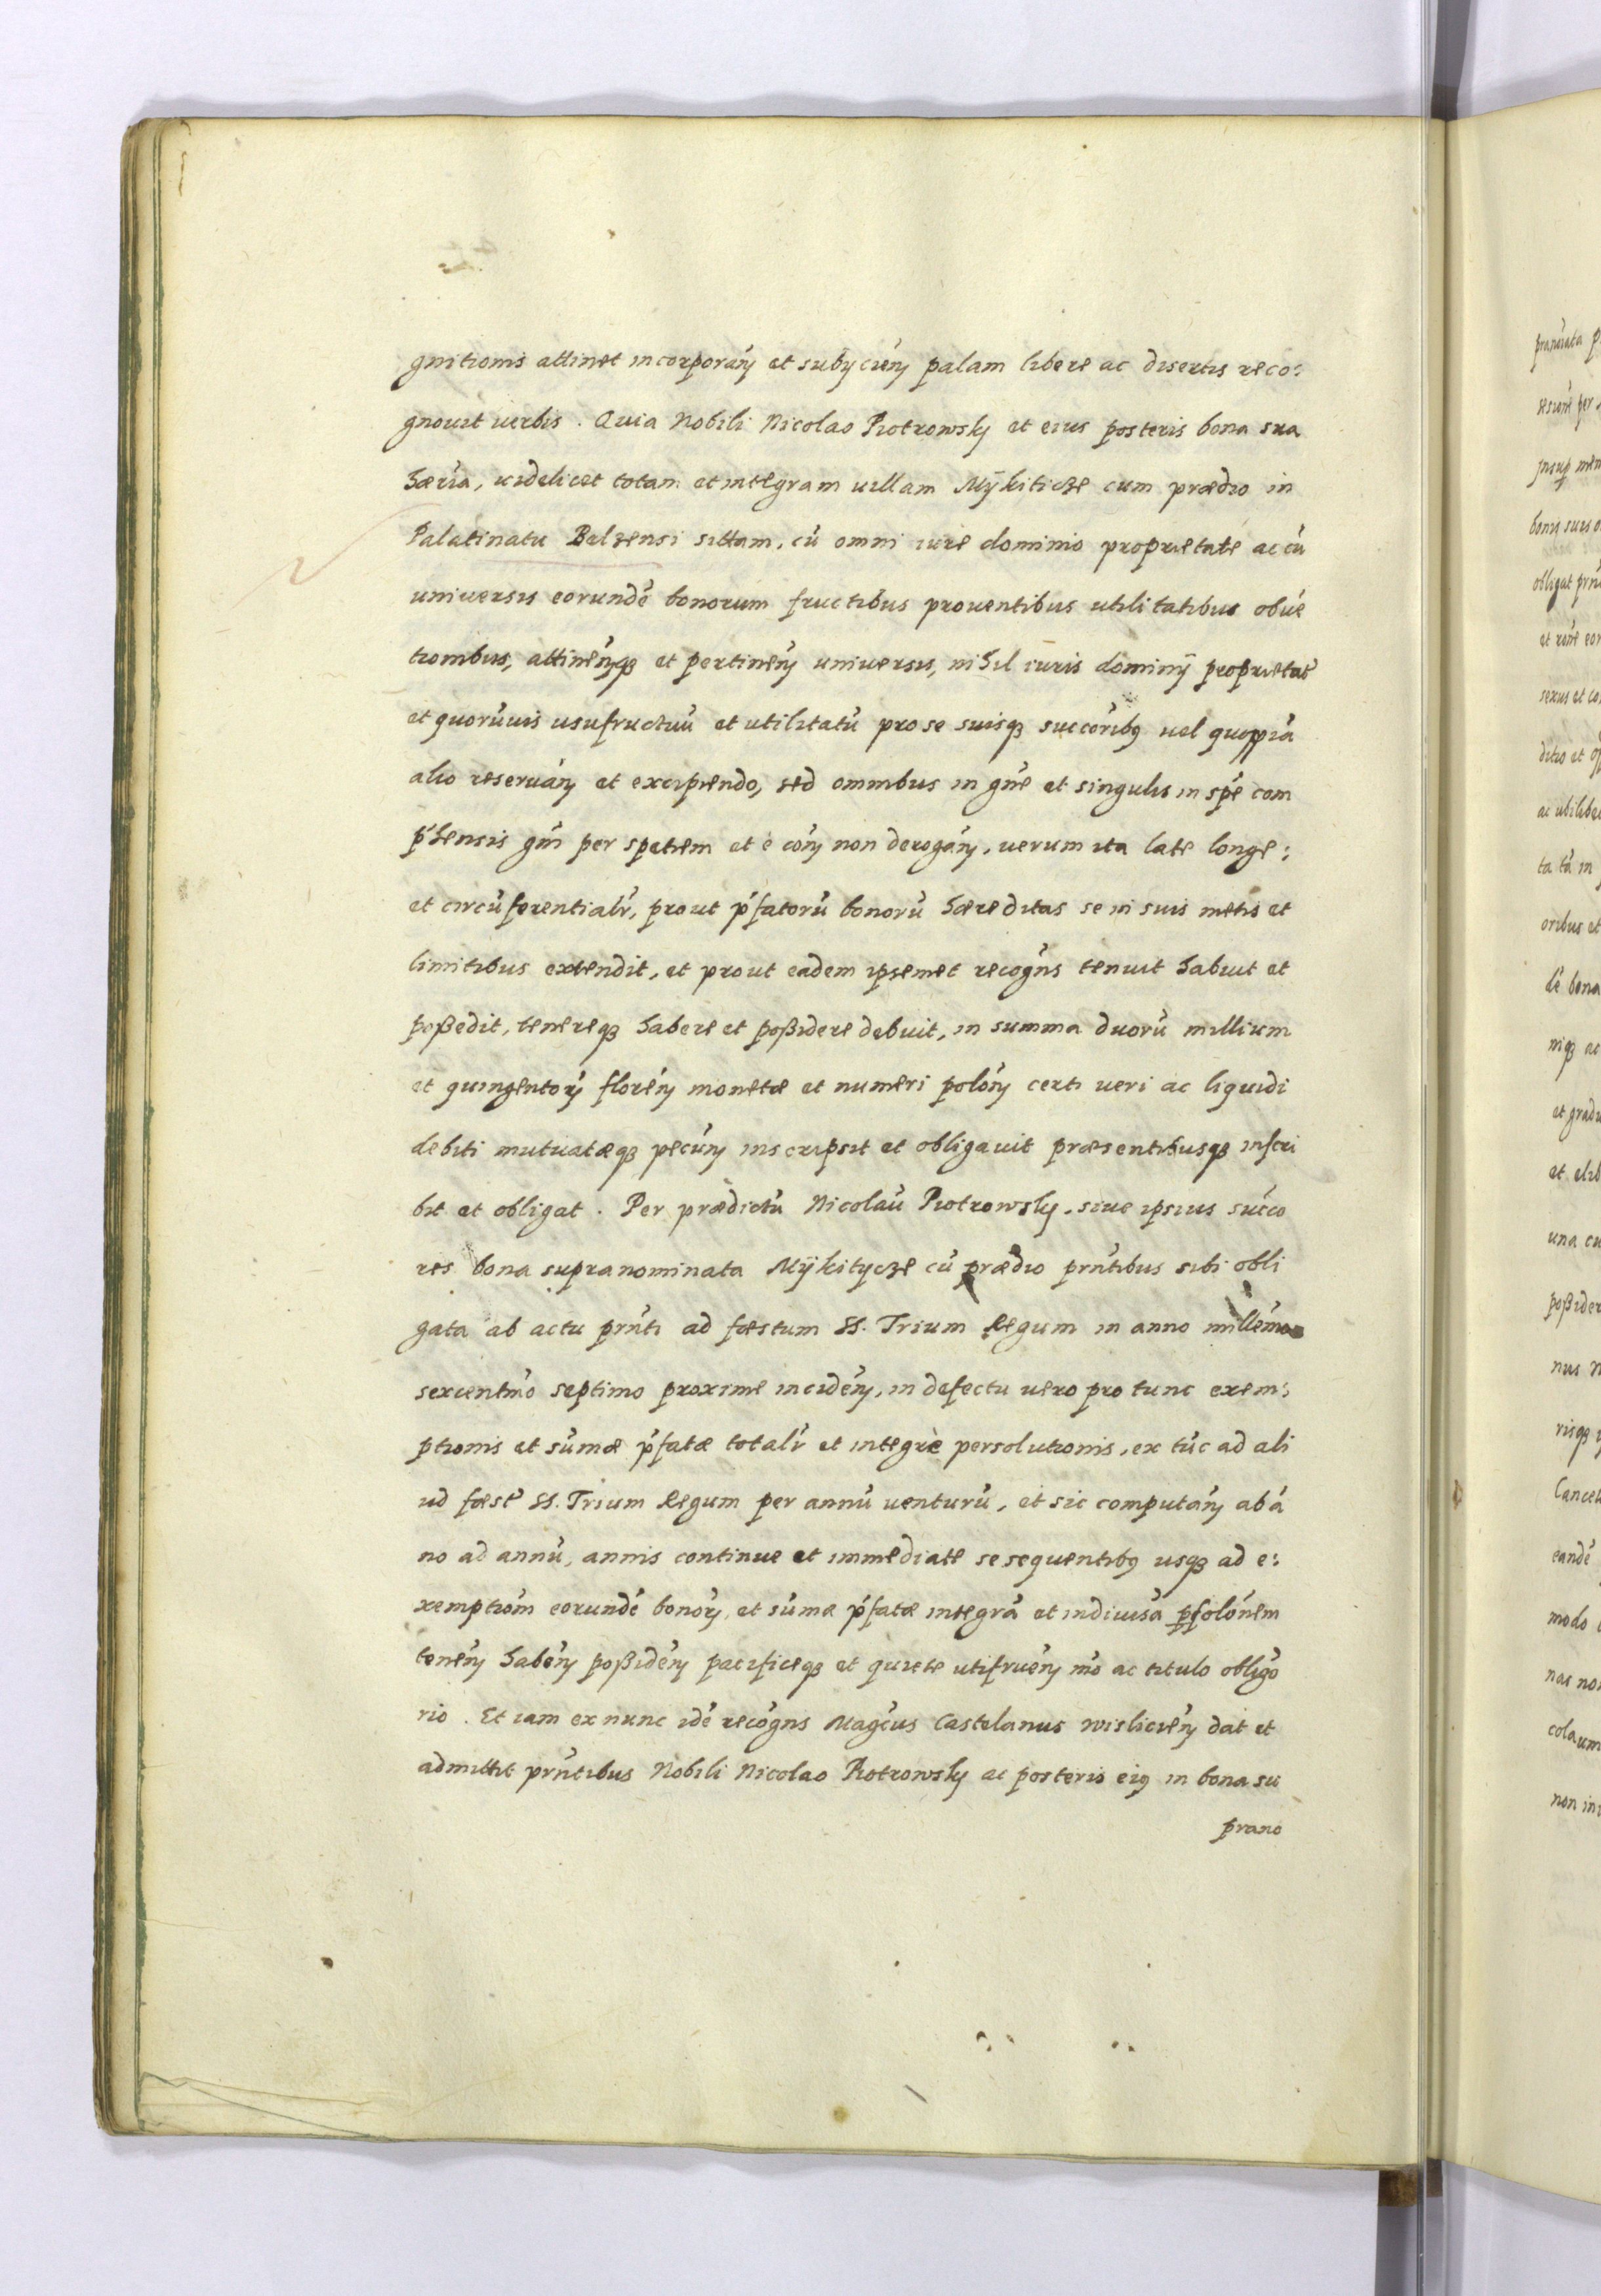 gnitionis attinet incorporań et subÿcień palam libere ac disertis reco:
gnouit uerbis. Quia Nobili Nicolao Piotrowsky et eius posteris bona sua
hæria, uidelicet totam et integram uillam Mÿkiticze cum prædio in
Palatinatu Belzensi sittam, cū omni iure dominio proprietate ac cū
uniuersis eorundē bonorum fructibus prouentibus utilitatibus obuē
tionibus, attinenńq₃ et pertineń uniuersis, nihil iuris dominÿ proprietat͛
et quorūuis usufructuū et utilitatū pro se suisq₃ succōribꝰ uel quoppiā
alio reseruań et excipiendo, sed omnibus in gn̄e et singulis in spē com
p͛hensis gn̄i per spetiem et è coń non derogań, uerum ita late longe:
et circūferentialr̄, prout p͛fatorū bonorū hæreditas se in suis metis et
limitibus extendit, et prout eadem ipsemet recogn̄s tenuit habuit et
poßedit, tenereq₃ habere et poßidere debuit, in summa duorū millium
et quingentorꝝ floreń monetæ et numeri poloń certi ueri ac liquidi
debiti mutuatæq₃ pecuń inscripsit et obligauit præsentibusq₃ inscri
bit et obligat. Per prædictū Nicolaū Piotrowsky, siue ipsius succō
res bona supranominata Mÿkitycze cū prædio prn̄tibus sibi obli
gata ab actu prn̄ti ad fæstum SS. Trium Regum in anno millēmo
sexcentm̄o septimo proxime incideń, in defectu uero pro tunc exem:
ptionis et sūmæ p͛fatæ totalr̄ et integrè persolutionis, ex tūc ad ali
ud fæst͛ SS. Trium Regum per annū uenturū, et sic computań ab ā
no ad annū, annis continue et immediate se sequentibꝰ usq₃ ad e:
xemptiōm eorundē bonorꝝ, et sūmæ p͛fatæ integrā et indiuisā ꝑsolōnem
teneń habeń poßideń pacificeq₃ et quiete utifrueń mō ac titulo obligō
rio. Et iam ex nunc idē recōgns Magc̄us Castelanus wislicień dat et
admittit prn̄tibus Nobili Nicolao Piotrowsky ac posteris eiꝰ in bona su
prano